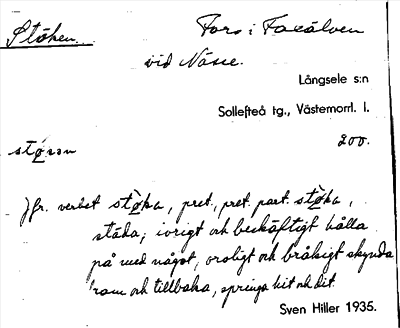 Stöken.
Fors i Faxälven
vid Näsie.
Långsele s:n
Sollefteå tg., Västernorrl. l.
200.
Jfr. verbet støka, pret., pret. part. støka,
städa; ivrigt och beskäftigt hålla
på med något, oroligt och bråkigt skynda
fram och tillbaka, springa hit och dit.
Sven Hiller 1935.